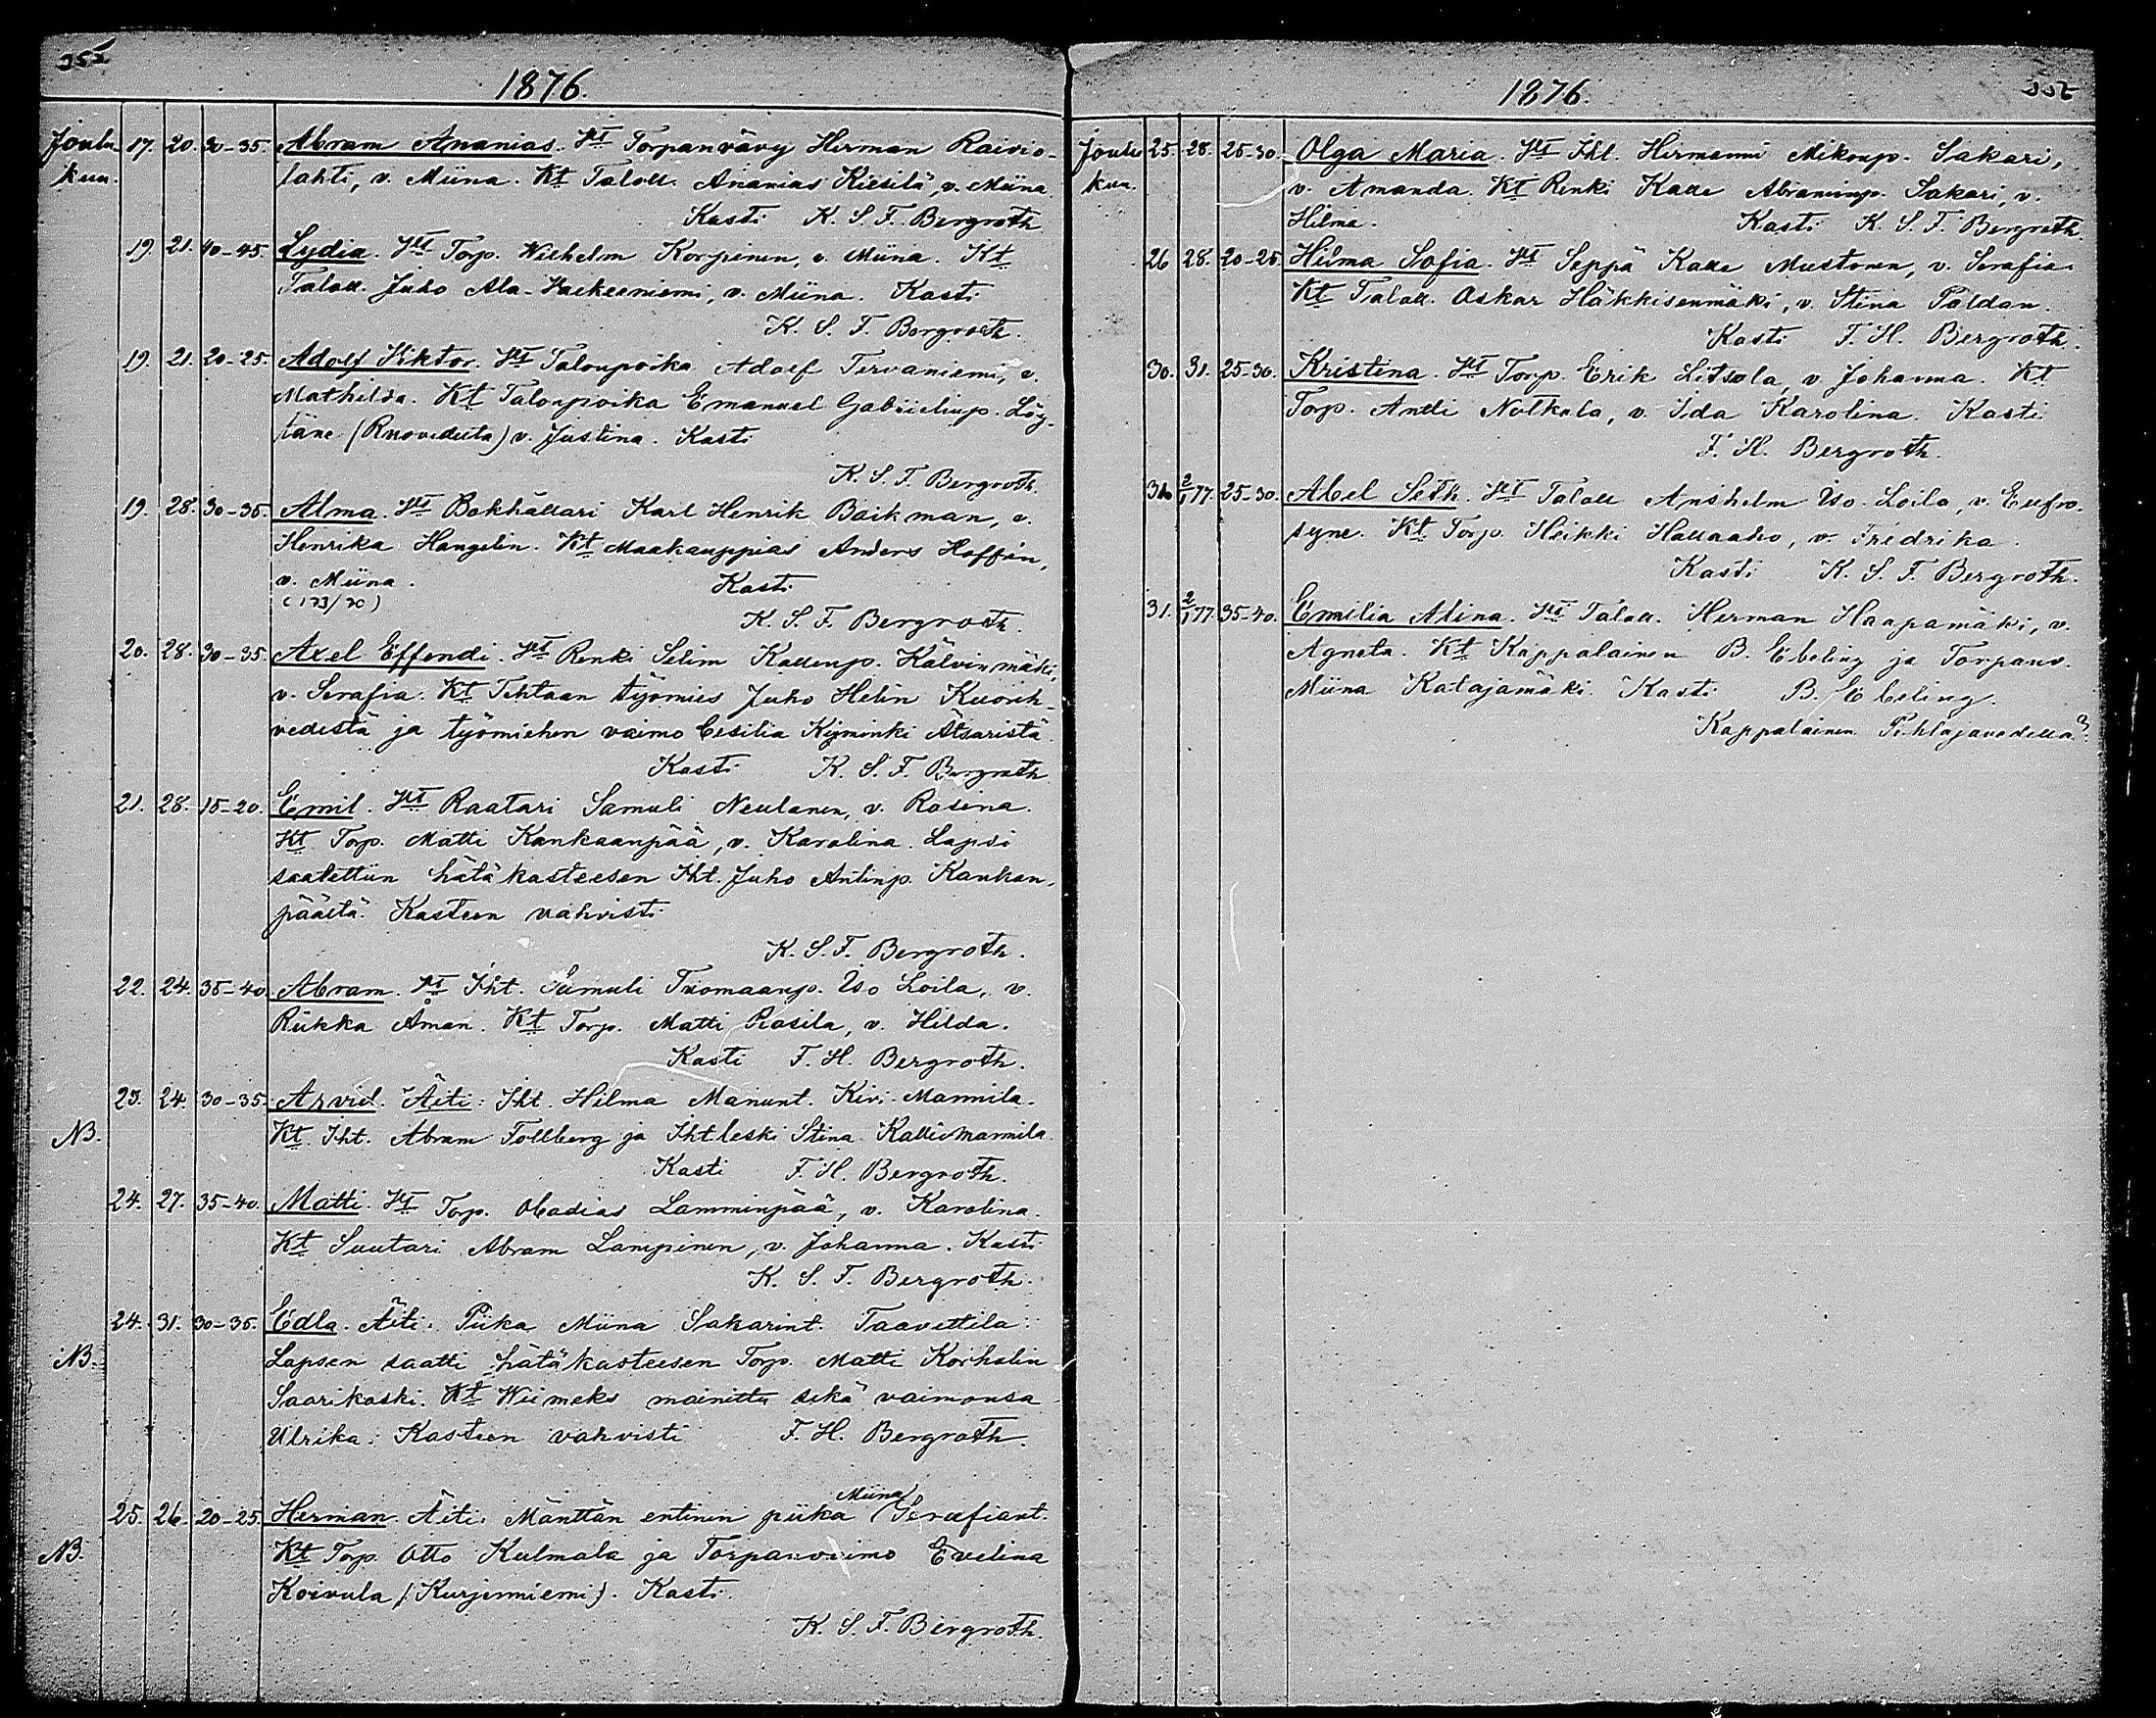 355
1876.
Joulu- 17. 20. 30-35. Abram Ananias. Vt Torpanvävy Herman Raivio-
kuu. lahti, v. Miina. Kt Taloll. Ananias Kiesilä, v. Miina
Kasti K. S. F. Bergroth
19. 21. 40-45. Lydia. Vt Torp. Wilhelm Korpinen, v. Miina. Kt
Taloll. Juho Ala-Valkeeniemi, v. Miina. Kasti
K. S. F. Bergroth.
19. 21. 20-25. Adolf Viktor. Vt Talonpoika Adolf Tervaniemi, v.
Mathilda. Kt Talonpoika Emanuel Gabrielinp. Löy-
täne (Ruovedeltä) v. Justina. Kasti
K. S. F. Bergroth.
19. 28. 30-35. Alma. Vt Bokhållari Karl Henrik Backman, v.
Henrika Hangelin. Kt Maakauppias Anders Hoffrén,
v. Miina. Kasti
(123/70)
K. S. F. Bergroth.
20. 28. 30-35. Axel Effendi. Vt Renki Selim Kallenp. Kälvinmäki,
v. Serafia. Kt Tehtaan työmies Juho Helin Kuoreh-
vedestä ja työmiehen vaimo Cesilia Kyminki Ätsäristä.
Kasti K. S. F. Bergroth
21. 28. 15-20. Emil. Vt Raatari Samuli Neulanen, v. Rosina.
Kt Torp. Matti Kankaanpää, v. Karolina. Lapsi
saatettiin hätäkasteesen Iht. Juho Antinp. Kankan-
päältä. Kasteen vahvisti
K. S. F. Bergroth.
22. 24. 35-40. Abram. Vt Iht. Samuli Tuomaanp. Iso Loila, v.
Riikka Åman. Kt Torp. Matti Rasila, v. Hilda.
Kasti F. H. Bergroth.
23. 24. 30-35. Arvid. Äiti: Iht. Hilma Manunt. Kivi-Mannila.
NB. Kt. Iht. Abram Tollberg ja Iht leski Stina Kalliomannila.
Kasti F. H. Bergroth.
24. 27. 35-40. Matti. Vt Torp. Obadias Lamminpää, v. Karolina.
Kt Suutari Abram Lampinen, v. Johanna. Kasti
K. S. F. Bergroth.
24. 31. 30-35. Edla. Äiti: Piika Miina Sakarint. Taavettila.
NB. Lapsen saatti hätäkasteesen Torp. Matti Korholin
Saarikoski. Kt Wiimeks mainittu sekä vaimonsa
Ulrika. Kasteen vahvisti F. H. Bergroth.
Miina
25. 26. 20-25. Herman. Äiti: Mänttän entinen piika Serafiant.
NB. Kt Torp. Otto Kulmala ja Torpanvaimo Evelina
Koivula (Kurjenniemi). Kasti
K. S. F. Bergroth.
1876.
Joulu 25. 28. 25-30. Olga Maria. Vt Iht. Hermanni Mikonp. Sakari,
kuu. v. Amanda. Kt Renki Kalle Abraminp. Sakari, v.
Hilma. Kasti K. S. F. Bergroth.
26 28. 20-25. Hilma Sofia. Vt Seppä Kalle Mustonen, v. Serafia
Kt Taloll. Oskar Häkkisenmäki, v. Stina Paldan.
Kasti F. H. Bergroth.
30. 31. 25-30. Kristina. Vt Torp. Erik Litsola, v. Johanna. Kt
Torp. Antti Notkola, v. Ida Karolina. Kasti
F. H. Bergroth.
2/1 77. 25-30. Abel Seth. Vt Taloll Anshelm Iso-Loila, v. Eufro-
syne. Kt Torp. Heikki Hallaaho, v. Fredrika.
Kasti K. S. F. Bergroth.
31. 2/1 77. 35-40. Emilia Alina. Vt Taloll. Herman Haapamäki, v.
Agneta. Kt Kappalainen B. Ebeling ja Torpanv.
Miina Katajamäki. Kasti B. Ebeling.
Kappalainen Pihlajavedellä.